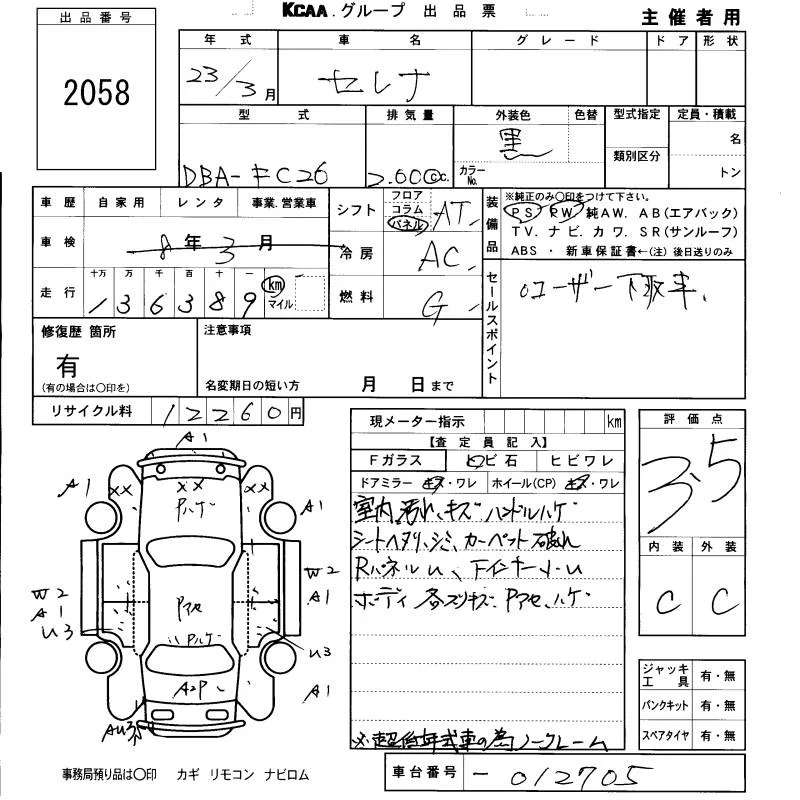 KCAA.グループ 出品票
主催者用
出品番号
2058
年式 車名 グレード ドア 形状
23/3月 セレナ
型式 排気量 外装色 色替 型式指定 定員・積載
DBA-FC26 2.00 c.c. 黒 カラーNo. 類別区分 名
トン
車歴 自家用 レンタ 事業.営業車
シフト フロア コラム パネル AT
装備品 ※純正のみ○印をつけて下さい。
PS PW 純AW. AB(エアバック)
TV. ナビ. カワ. SR(サンルーフ)
ABS ・ 新車保証書←(注) 後日送りのみ
車検 8年3月
冷房 AC
走行 十万 万 千 百 十 一
1 3 6 3 8 9 km マイル
燃料 G
セールスポイント
ユーザー下取車、
修復歴 箇所
有
(有の場合は○印を)
注意事項
名変期日の短い方 月 日まで
リサイクル料 12260円
現メーター指示 km
【査定員記入】
Fガラス ヒビ石 ヒビワレ
ドアミラー キズ・ワレ ホイール(CP) キズ・ワレ
室内汚れ、キズ ハンドルハゲ
シートヘタリ、シミ、カーペット破れ
RパネルU、FインナーU
ボディ各スリキズ、Pアセ、ハゲ
※超低年式車の為ノークレーム
評価点
3.5
内装 外装
C C
ジャッキ工具 有・無
パンクキット 有・無
スペアタイヤ 有・無
A1
A1 XX XX XX
Pハゲ A1
W2 W2
A1 Pアセ A1
U3 Pハゲ U3
A2P A1
AU3
事務局預り品は○印 カギ リモコン ナビロム
車台番号 -012705